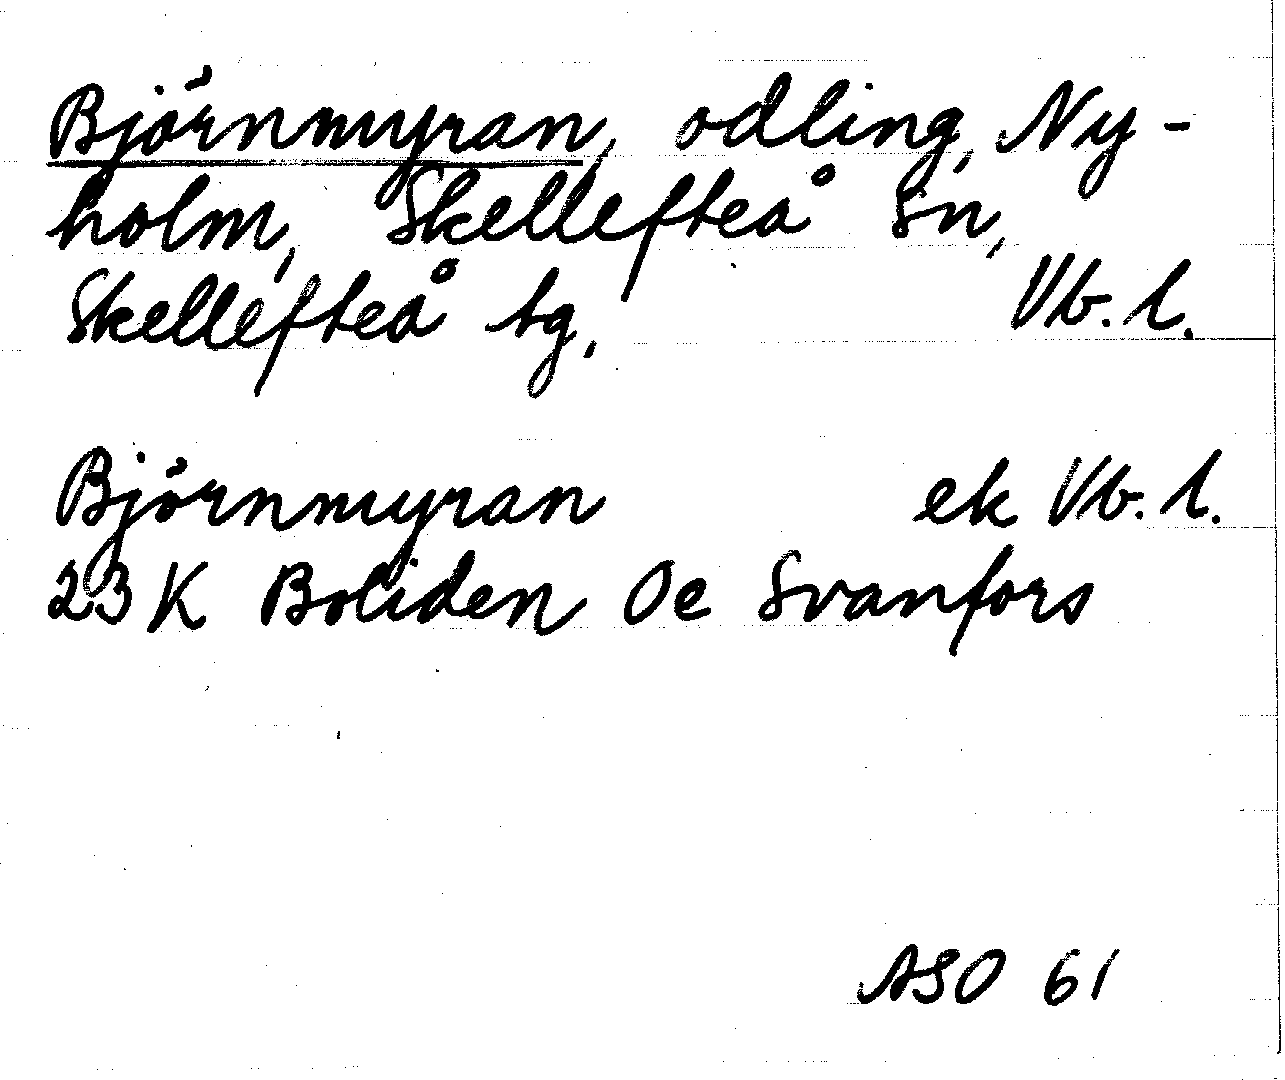 Björnmyran, odling, Ny-
holm, Skellefteå Sn,
Skellefteå tg, Vb. l.
Björnmyran ek Vb. l.
23 K Boliden Oe Svanfors
ASO 61